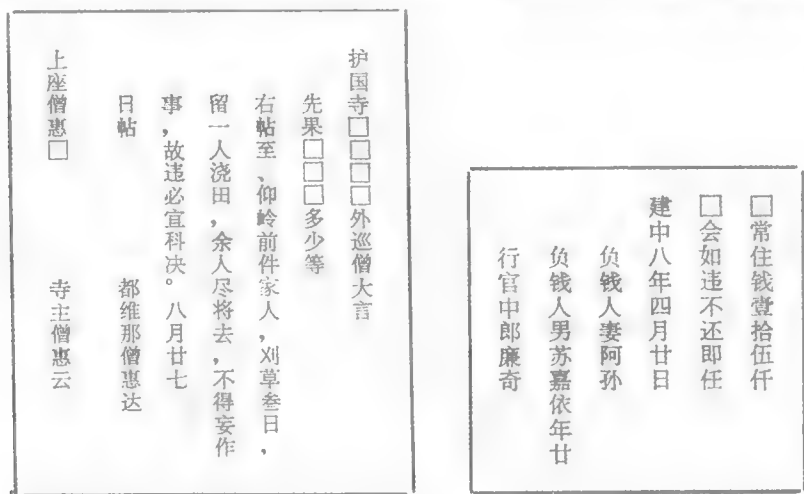 □常住钱壹拾伍仟
□会如违不还即任
建中八年四月廿日
负钱人妻阿孙
负钱人男苏嘉依年廿
行官中郎廉奇
护国寺□□□□外巡僧大言
先果□□□多少等
右帖至、仰岭前件家人,刈草叁日,
留一人浇田,余人尽将去,不得妄作
事,故违必宜科决。八月廿七
日帖 都维那僧惠达
上座僧惠□ 寺主僧惠云